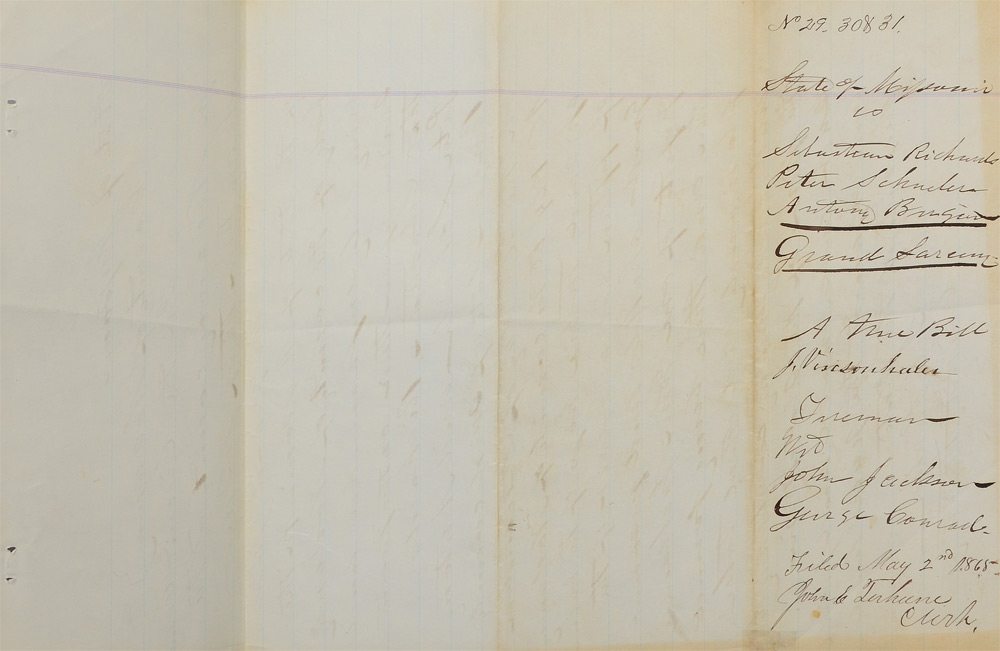 No 29. 30 & 31.
State of Missouri
vs
Sebastian Richards
Peter Schuder
Antone
Grand Larceny
A True Bill
J. Vinsonhaler
Foreman
Wit
John Jackson
George Conrad.
Filed May 2nd 1865
John E Terhune
Clerk.